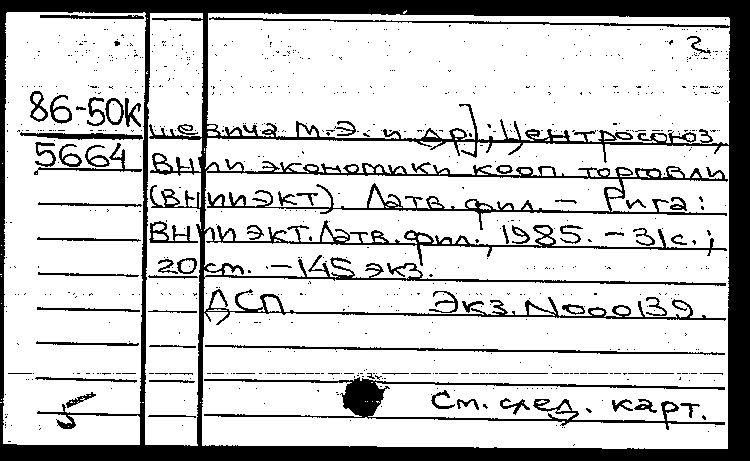 2
86-50К
шевича М.Э. и др.]; Центросоюз,
5664 ВНИИ экономики кооп. торговли
(ВНИИЭКТ). Латв. фил. – Рига:
ВНИИЭКТ. Латв. фил., 1985. – 31с.;
20 см. – 145 экз.
ДСП. Экз. N000139.
См. след. карт.
5